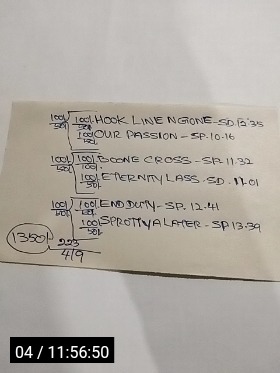 100/50 100/50 HOOK LINE NGONE - SD.12.35
100/50 OUR PASSION - SP.10.16
100/50 100/ BOONE CROSS - SP.11.32
100/50 ETERNITY LASS - SD.
100/50 100/50 END DUTY - SP. 12.41
100/50 - SP 13.39
1350/-
223
419
04 / 11:56:50